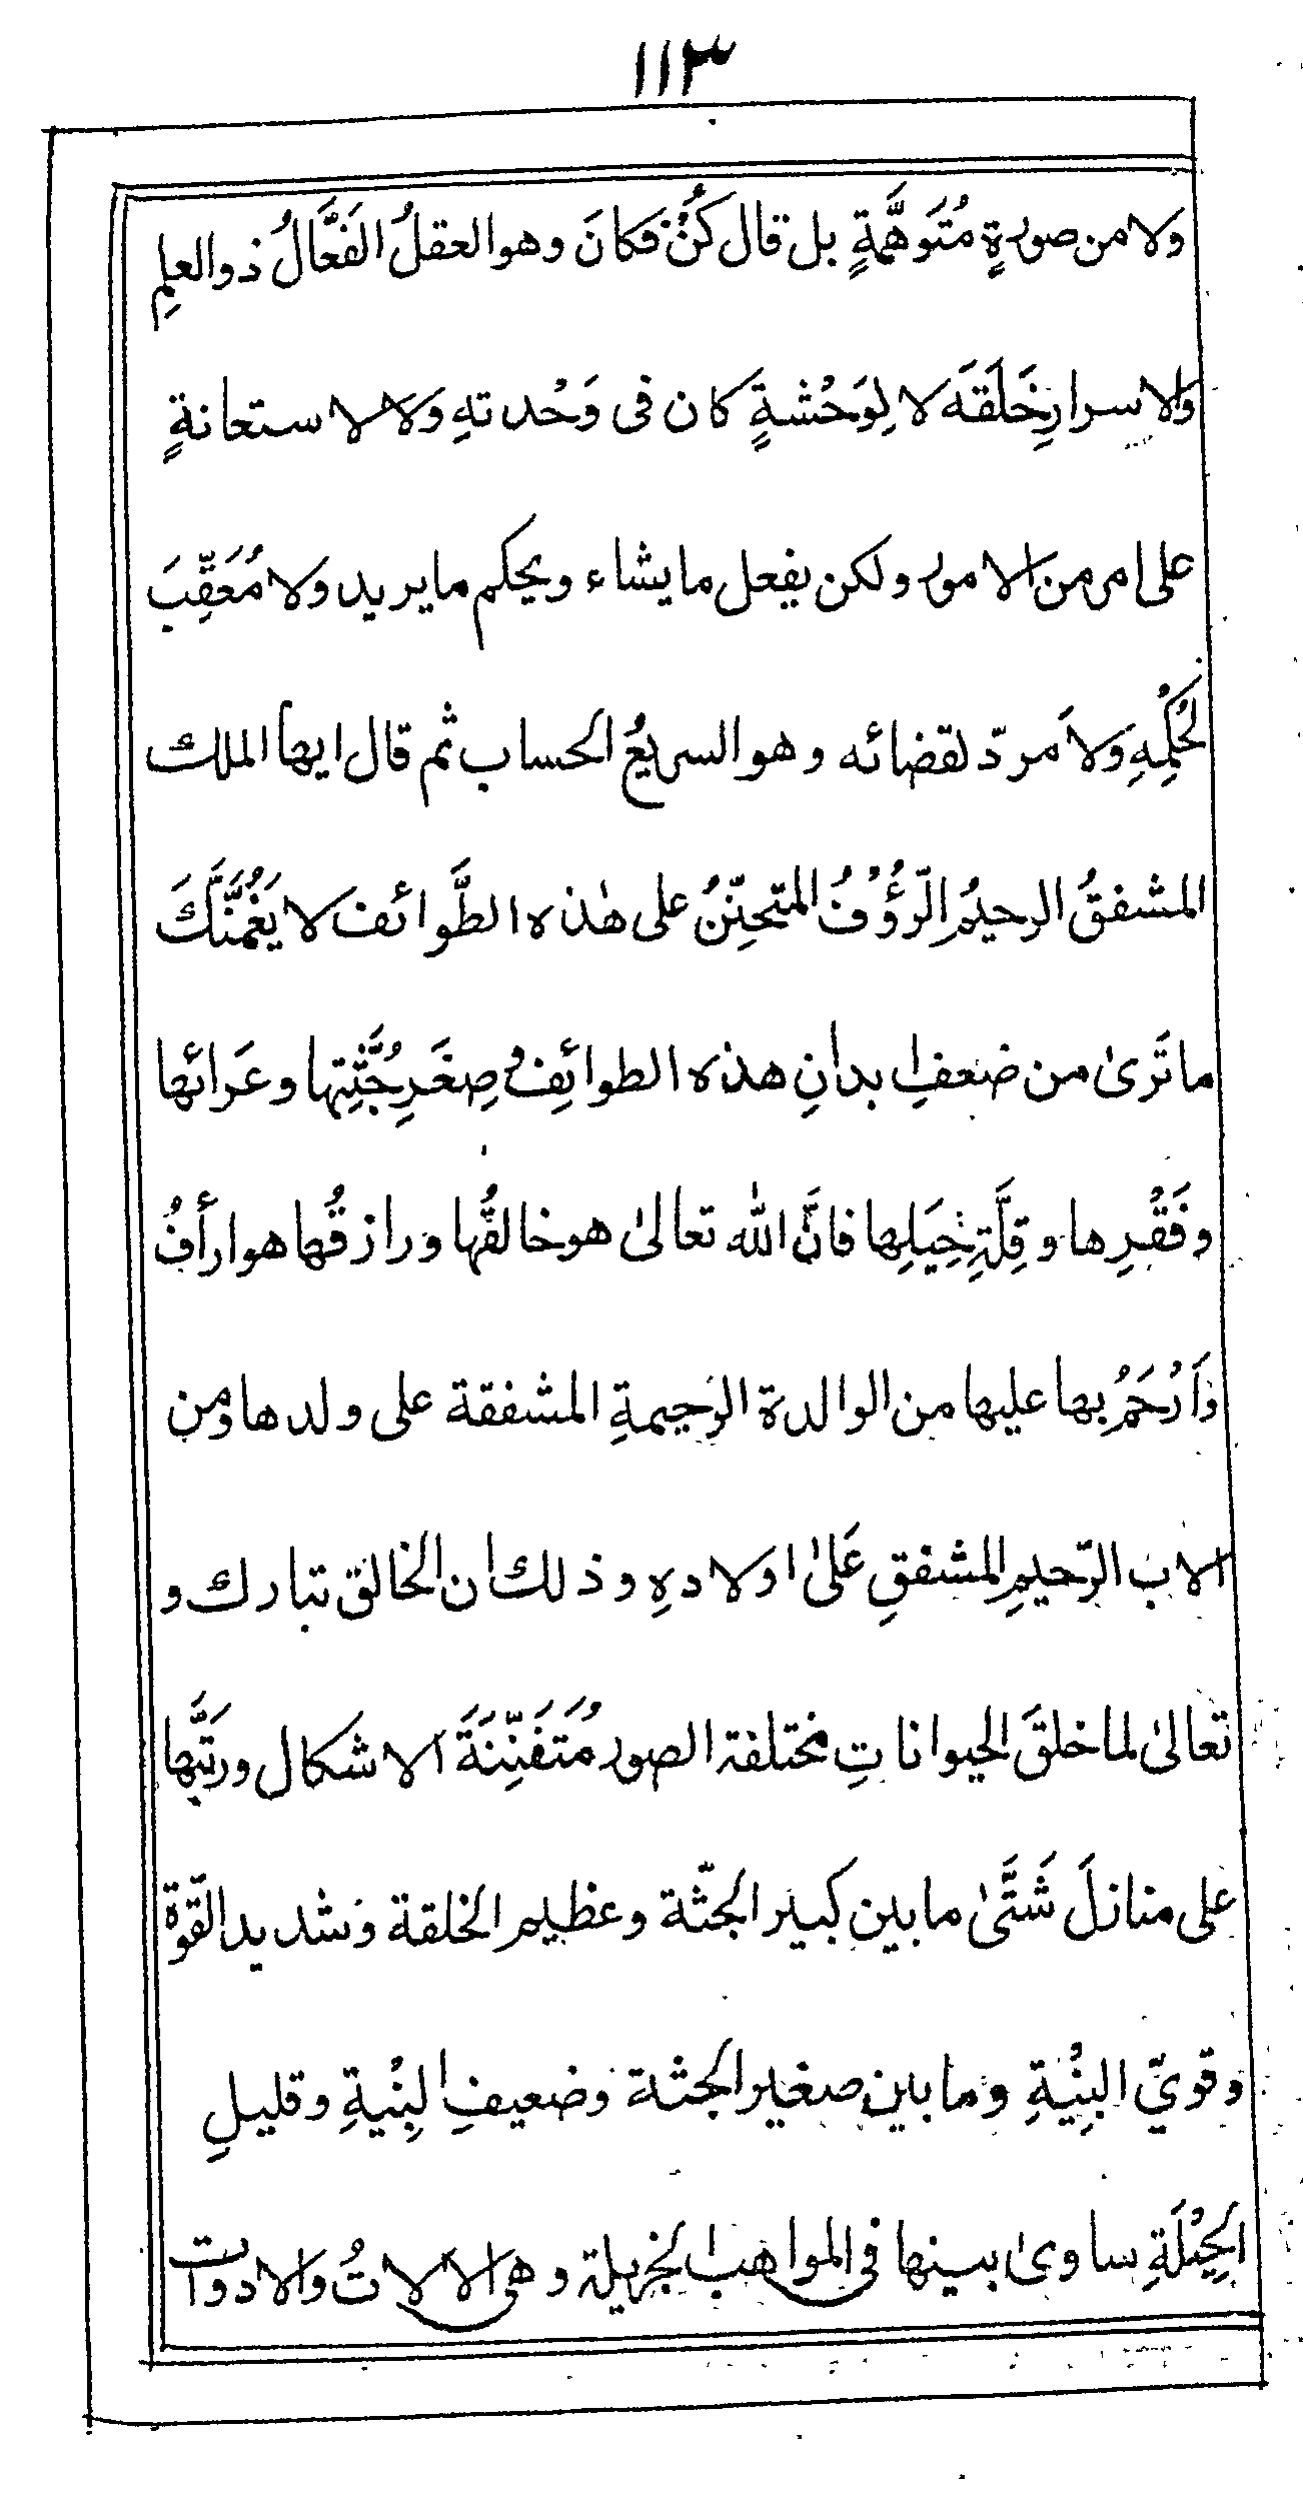 ١١٣
ولا من صورةٍ مُتَوَهَّمةٍ بل قال كُنْ فكانَ وهو العقلُ الفَعَّالُ ذو العلمِ
والاسرارِ خَلَقَه لا لِوَحْشةٍ كان فى وَحْدتهِ ولا لاستعانةٍ
على امر من الامور ولكن يفعل ما يشاء ويحكم ما يريد ولا مُعَقِّبَ
لحُكْمِهِ ولاَ مردّ لقضائه وهو السريعُ الحساب ثم قال ايها الملك
المشفقُ الرحيمُ الرّؤُوْفُ المتحنِّنُ على هٰذه الطَّوائف لا يَغُمَّنَّكَ
ما تَرىٰ من ضعفِ ابدانِ هذه الطوائِفُ وصِغَرِ جُثَّتِها وعَرائها
وفَقْرِها وقِلَّةِ حِيَلِها فانَّ الله تعالىٰ هو خالقُها ورازقُها هو ارأفُ
وَاَرْحَمُ بها عليها من الوالدة الرَحيمةِ المشفقة على ولدها ومن
الاب الرّحيمِ المشفقِ عَلىٰ اولادهِ وذلك ان الخالق تبارك و
تعالىٰ لما خلقَ الحيواناتِ مختلفة الصور مُتَفَنِّنَةَ الاشكال ورتَّبَها
على منازلَ شَتَّىٰ ما بين كبير الجثّة وعظيم الخلقة وشديد القوّة
وقويّ البِنْيةِ وما بين صغير الجثة وضعيفِ البِنْيةِ وقليلِ
الحِيْلَةِ ساوىٰ بينها فى المواهب الجزيلة وهى الالاتُ والادوات